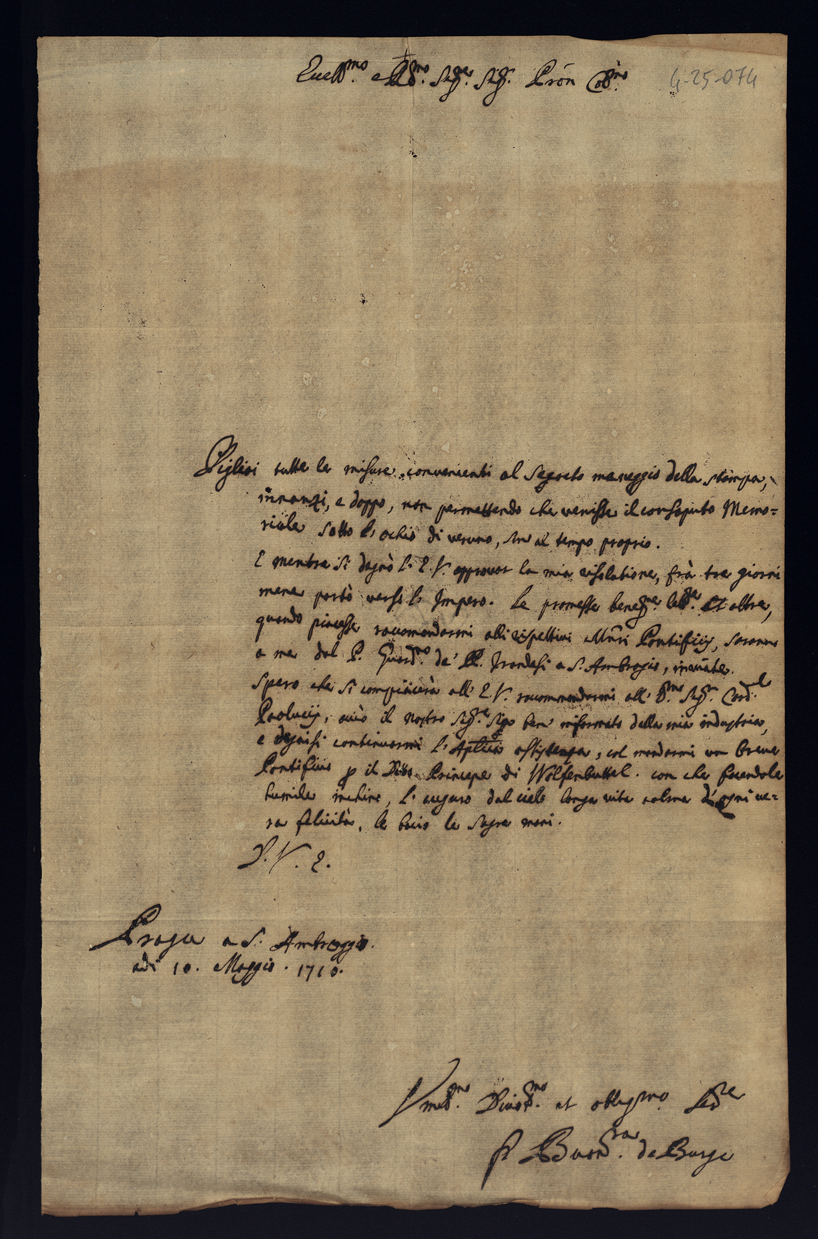 Eccll.mo e R.mo Sig.re Sig.r Prõn Col.mo
4-25-074
Pigliai tutte le misure convenienti al segreto maneggio della stampa,
innanzi, e doppo, non permettendo che venisse il consaputo Memo=
riale sotto l'ochio di veruno, sin al tempo proprio.
E mentre si degnò l'E.V. approvar la mia risolutione, frà tre giorni
mene partò verso l'Impero. Le promesse et altre,
quando piacesse racomandarmi alli rispettivi Mñri Pontificij, saranno
a me dal P. Guard.no de' PP. Irandesi a S. Ambrogio, inviate.
Spero che si compiacerà all'E.V. racommendarmi all' Sig.r Card.l
Paolucij, acciò il nostro Sig.re sijo ben informato della mia industria,
e degnisi continuarmi l' assistenza, col mandarmi un breve
Pontificio p il Principe di Wolfenbuttel. con che facendole
humile inchino, l'auguro dal cielo longa vita colma d'ogni ve=
ra felicità, le bacio le sagre mani.
D. V. E.
Praga a S. Ambroggio.
adi 10. Maggio. 1710.
Vmil.mo Divot.mo et obblig.mo Ser.re
fr Buon.ra de Burgo